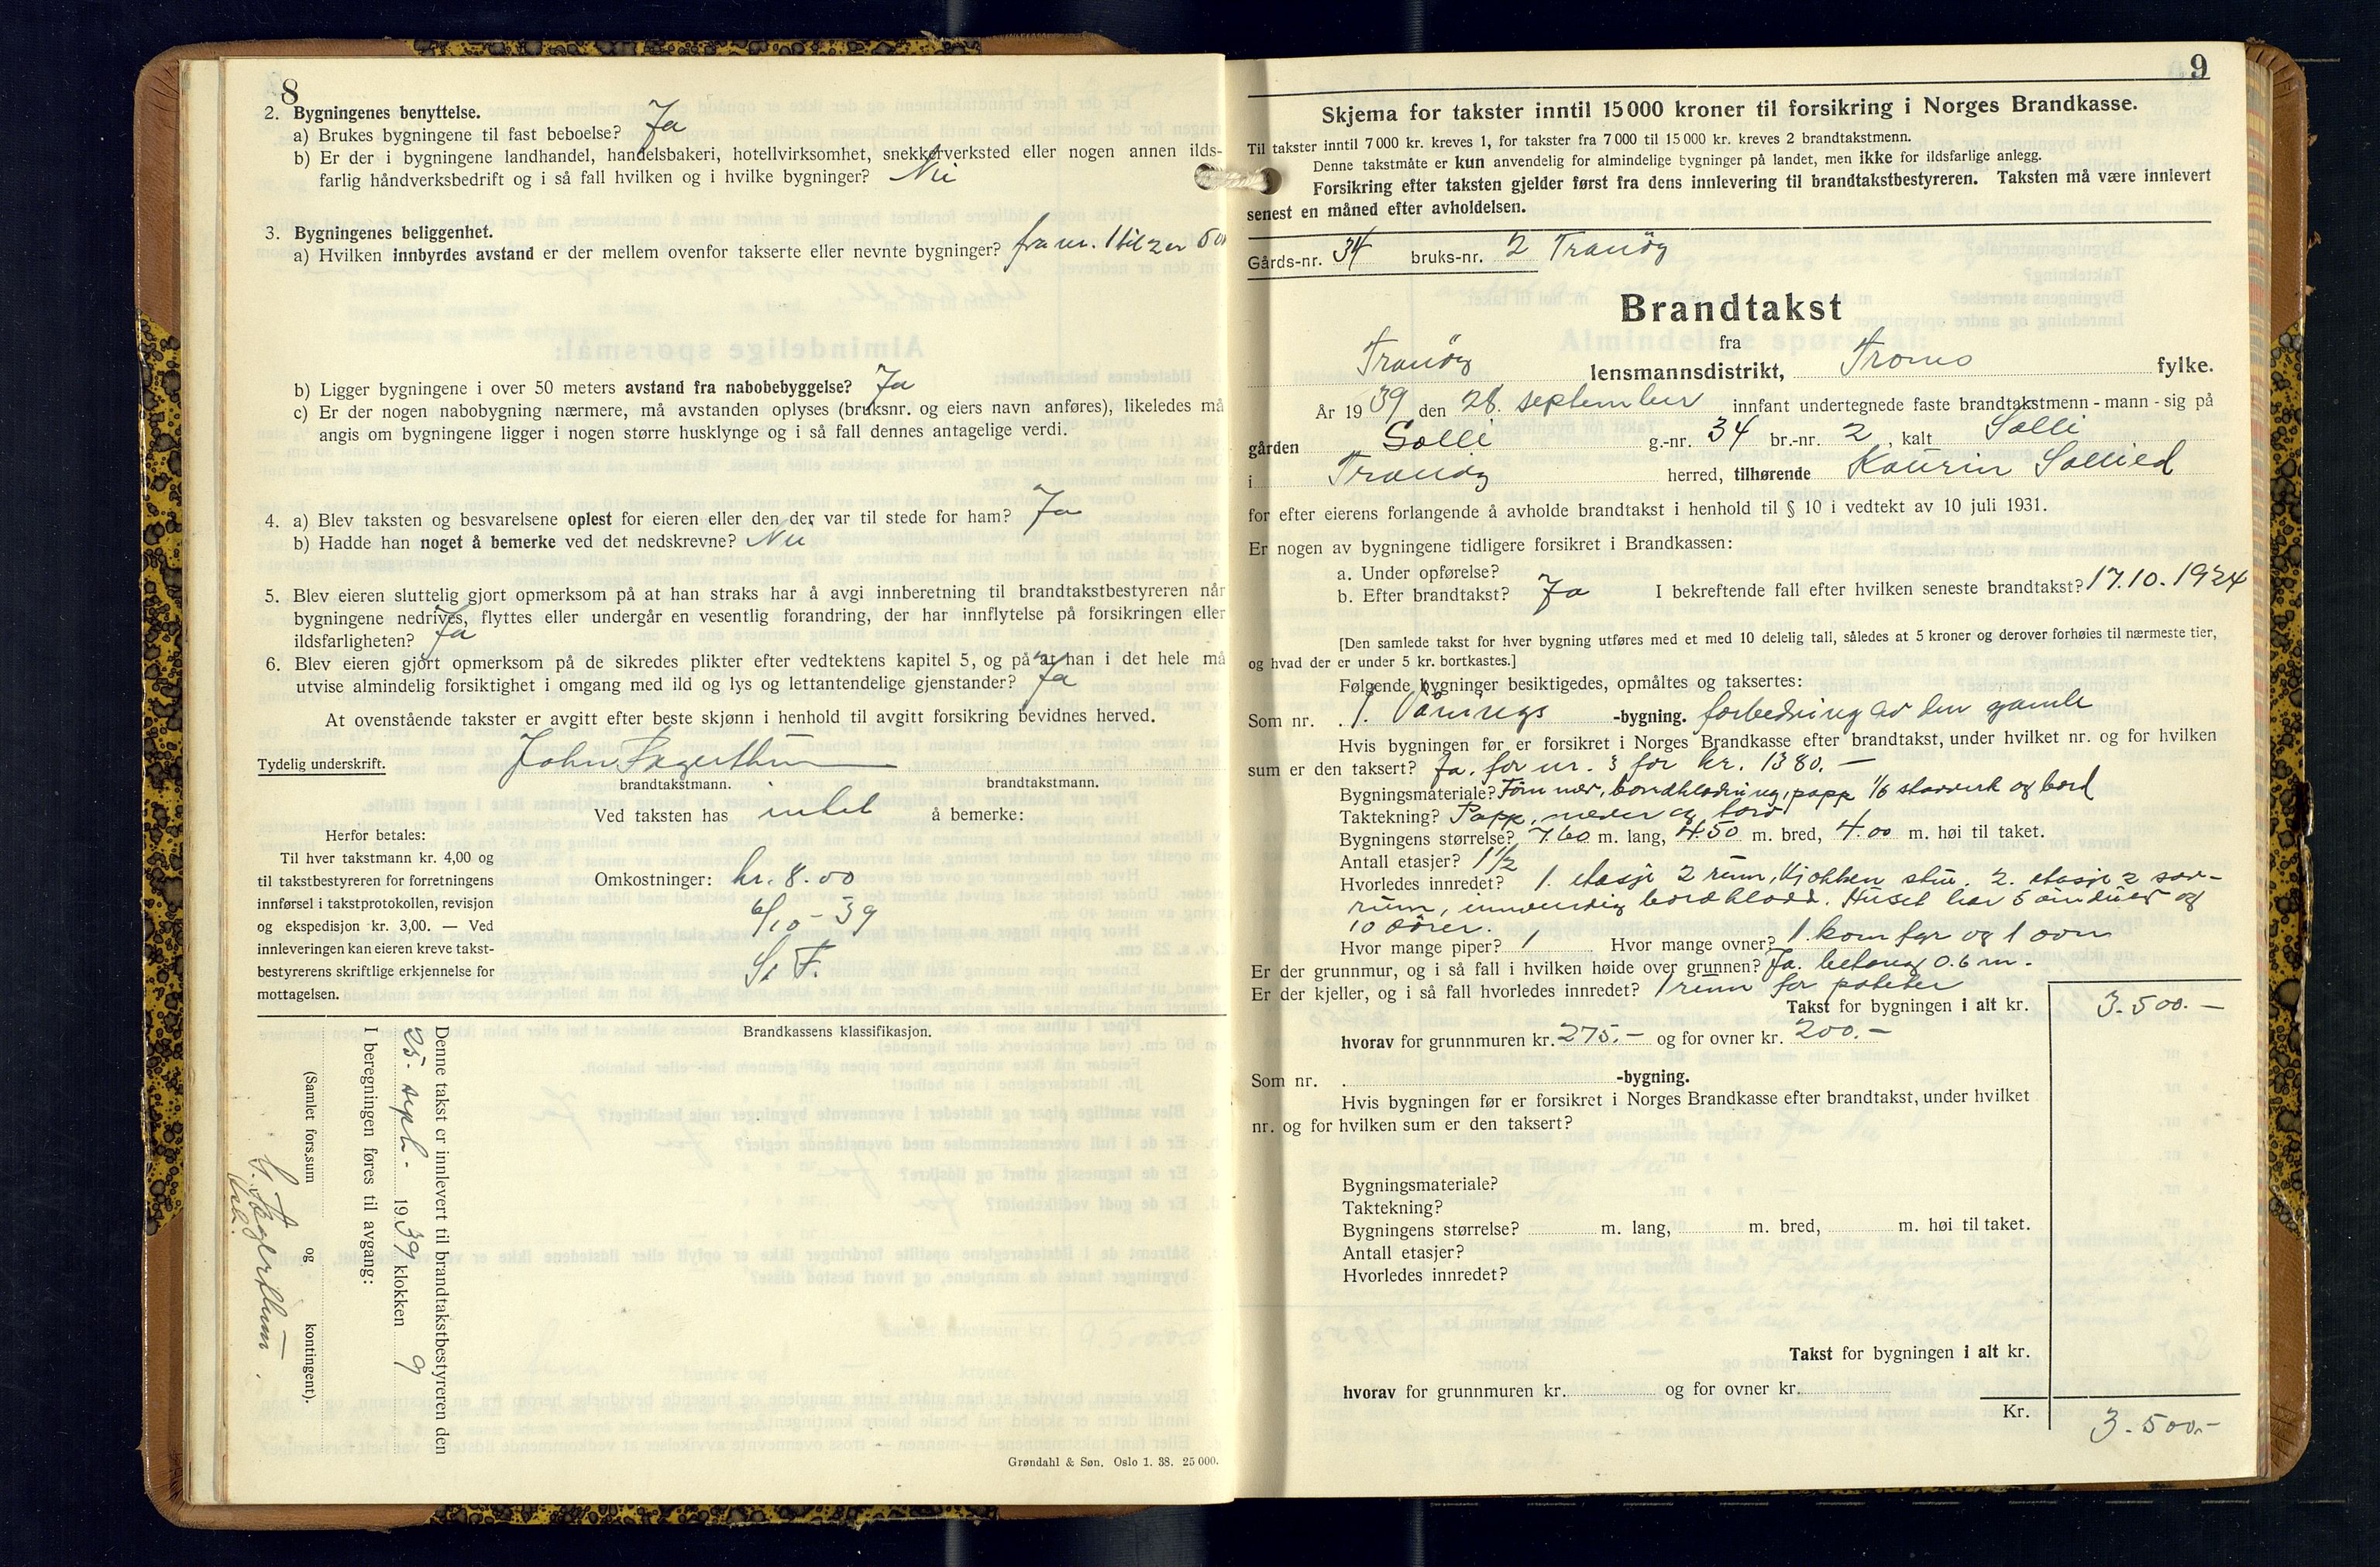 8
2. Bygningenes benyttelse.
a) Brukes bygningene til fast beboelse? Ja
b) Er der i bygningene landhandel, handelsbakeri, hotellvirksomhet, snekkerverksted eller nogen annen ilds-
farlig håndverksbedrift og i så fall hvilken og i hvilke bygninger? Nei
3. Bygningenes beliggenhet.
a) Hvilken innbyrdes avstand er der mellem ovenfor takserte eller nevnte bygninger? fra nr. 1 til 2 er
b) Ligger bygningene i over 50 meters avstand fra nabobebyggelse? Ja
c) Er der nogen nabobygning nærmere, må avstanden oplyses (bruksnr. og eiers navn anføres), likeledes må
angis om bygningene ligger i nogen større husklynge og i så fall dennes antagelige verdi.
4. a) Blev taksten og besvarelsene oplest for eieren eller den der var til stede for ham? Ja
b) Hadde han noget å bemerke ved det nedskrevne? Nei
5. Blev eieren sluttelig gjort opmerksom på at han straks har å avgi innberetning til brandtakstbestyreren når
bygningene nedrives, flyttes eller undergår en vesentlig forandring, der har innflytelse på forsikringen eller
ildsfarligheten? Ja
6. Blev eieren gjort opmerksom på de sikredes plikter efter vedtektens kapitel 5, og på at han i det hele må
utvise almindelig forsiktighet i omgang med ild og lys og lettantendelige gjenstander? Ja
At ovenstående takster er avgitt efter beste skjønn i henhold til avgitt forsikring bevidnes herved.
Tydelig underskrift. John Fagerthun
brandtakstmann. brandtakstmann.
Ved taksten has intet å bemerke:
Herfor betales:
Til hver takstmann kr. 4,00 og
til takstbestyreren for forretningens
innførsel i takstprotokollen, revisjon
og ekspedisjon kr. 3,00. — Ved
innleveringen kan eieren kreve takst-
bestyrerens skriftlige erkjennelse for
mottagelsen.
Omkostninger: kr. 8.00
6/10 - 39
S. F.
Brandkassens klassifikasjon.
Denne takst er innlevert til brandtakstbestyreren den
25. sept. 1939 klokken 9
I beregningen føres til avgang:
(Samlet fors.sum og kontingent).
Fagerthun.
Grøndahl & Søn. Oslo 1. 38. 25 000.
9
Skjema for takster inntil 15 000 kroner til forsikring i Norges Brandkasse.
Til takster inntil 7 000 kr. kreves 1, for takster fra 7 000 til 15 000 kr. kreves 2 brandtakstmenn.
Denne takstmåte er kun anvendelig for almindelige bygninger på landet, men ikke for ildsfarlige anlegg.
Forsikring efter taksten gjelder først fra dens innlevering til brandtakstbestyreren. Taksten må være innlevert
senest en måned efter avholdelsen.
Gårds-nr. 34 bruks-nr. 2 Tranöy
Brandtakst
fra
Tranöy lensmannsdistrikt, Troms fylke.
År 1939 den 28. september innfant undertegnede faste brandtakstmenn - mann - sig på
gården Solli g.-nr. 34 br.-nr. 2, kalt Solli
i Tranöy herred, tilhørende Kaurin Sollied
for efter eierens forlangende å avholde brandtakst i henhold til § 10 i vedtekt av 10 juli 1931.
Er nogen av bygningene tidligere forsikret i Brandkassen:
a. Under opførelse?
b. Efter brandtakst? Ja I bekreftende fall efter hvilken seneste brandtakst? 17.10.1924
[Den samlede takst for hver bygning utføres med et med 10 delelig tall, således at 5 kroner og derover forhøies til nærmeste tier,
og hvad der er under 5 kr. bortkastes.]
Følgende bygninger besiktigedes, opmåltes og taksertes:
Som nr. 1. Vånings -bygning. forbedring av den gamle
Hvis bygningen før er forsikret i Norges Brandkasse efter brandtakst, under hvilket nr. og for hvilken
sum er den taksert? Ja. for nr. 3 for kr. 1380.—
Bygningsmateriale? Tömmer, bordkledning, papp 1/6 stavverk og bord
Taktekning? Papp, never og torv
Bygningens størrelse? 7.60 m. lang, 4.50 m. bred, 4.00 m. høi til taket.
Antall etasjer? 1 1/2
Hvorledes innredet? 1. etasje 2 rum, kjökken stue. 2. etasje 2 sov-
rum, innvendig bordkledd. Huset har 5 vinduer og
10 dörer.
Hvor mange piper? 1 Hvor mange ovner? 1 komfyr og 1 ovn
Er der grunnmur, og i så fall i hvilken høide over grunnen? Ja. betong 0.6 m.
Er der kjeller, og i så fall hvorledes innredet? 1 rum for poteter
Takst for bygningen i alt kr. 3.500.—
hvorav for grunnmuren kr. 275.— og for ovner kr. 200.—
Som nr. -bygning.
Hvis bygningen før er forsikret i Norges Brandkasse efter brandtakst, under hvilket
nr. og for hvilken sum er den taksert?
Bygningsmateriale?
Taktekning?
Bygningens størrelse? m. lang, m. bred, m. høi til taket.
Antall etasjer?
Hvorledes innredet?
Takst for bygningen i alt kr.
hvorav for grunnmuren kr. og for ovner kr.
Kr. 3.500.-